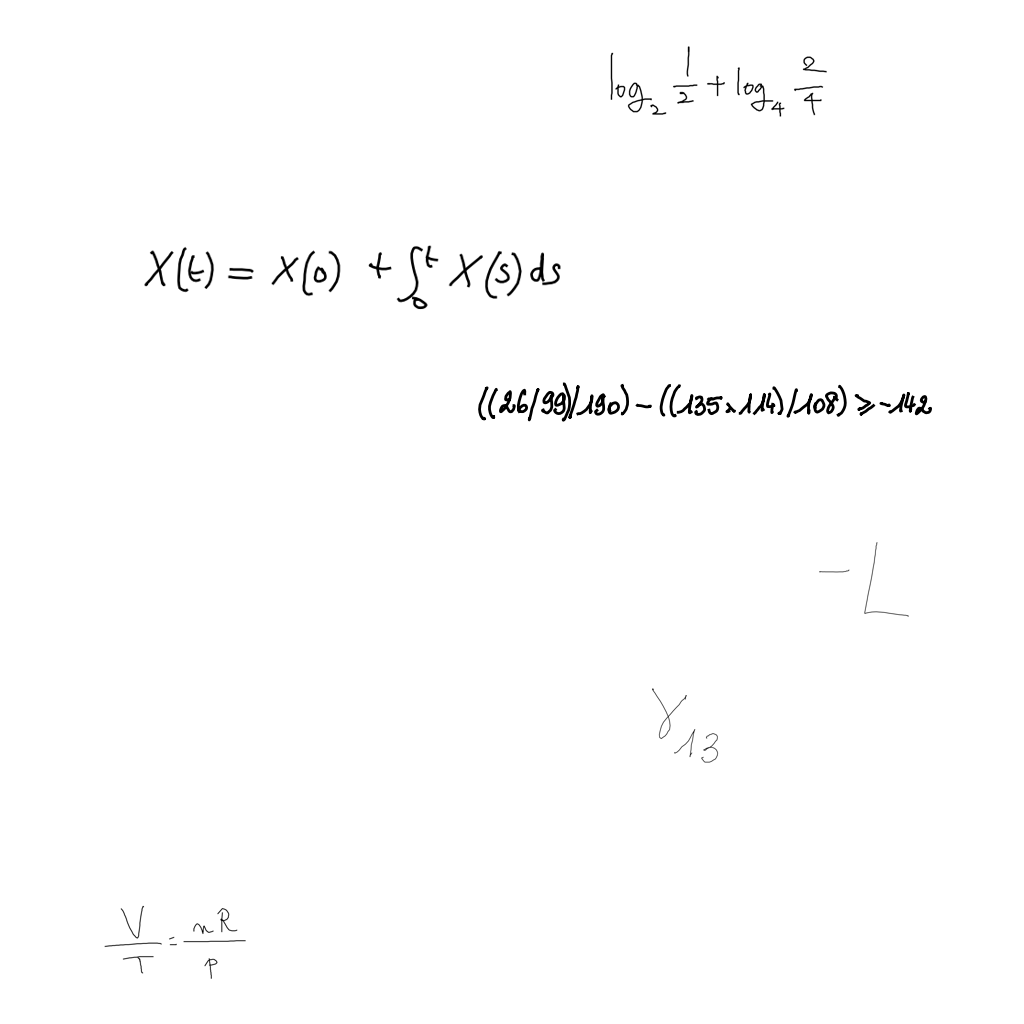 \log_2 \frac{1}{2} + \log_4 \frac{2}{4}
X(t) = X(0) + \int_0^t X(s) ds
((26/99)/190) - ((135 \times 114)/108) \geqslant -142
-L
\gamma_{13}
\frac{V}{T} = \frac{nR}{P}